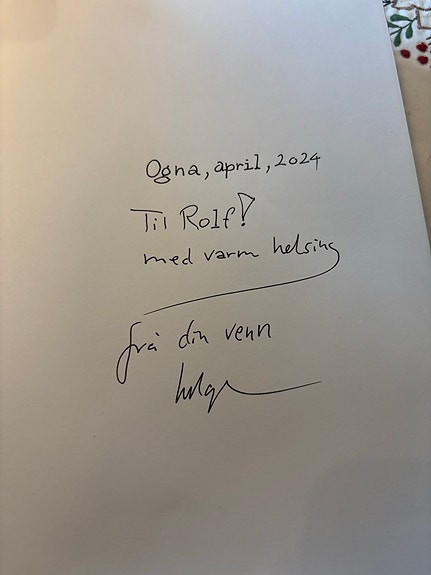 Ogna, april, 2024
Til Rolf!
med varm helsing
frå din venn
helge